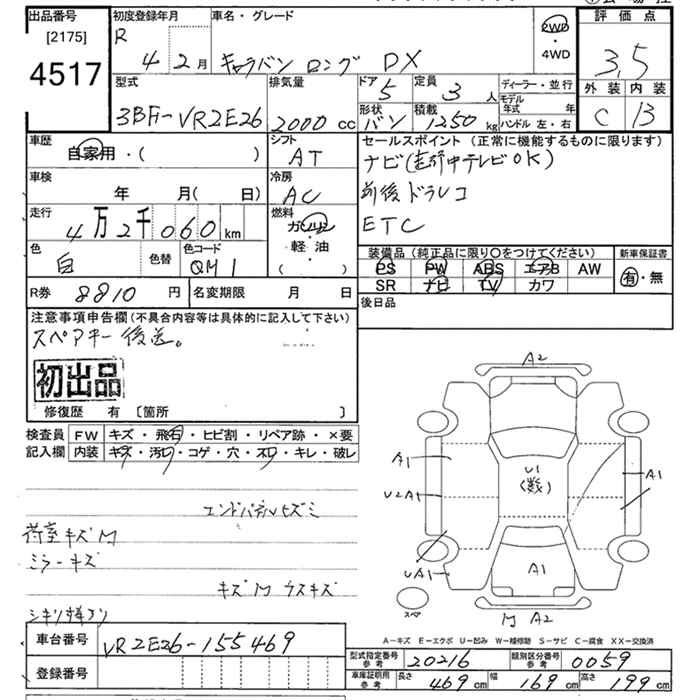 出品番号
[2175]
4517
初度登録年月
R 4 2 月
車名・グレード
キャラバン ロング DX
2WD
・
4WD
評価点
3.5
外装 内装
C B
型式
3BF-VR2E26
排気量
2000 cc
ドア
5
定員
3 人
形状
バン
積載
1250 kg
ディーラー・並行
モデル年式 年
ハンドル 左・右
車歴
自家用・( )
シフト
AT
車検
年 月( 日)
冷房
AC
走行
4万2千060 km
燃料
ガソリン
軽・油
( )
色
白
色替
色コード
QM1
R券 8810 円
名変期限 月 日
セールスポイント(正常に機能するものに限ります)
ナビ(走行中テレビOK)
前後ドラレコ
ETC
装備品(純正品に限り〇をつけてください)
PS PW ABS エアB AW
SR ナビ TV カワ
新車保証書
有・無
後日品
注意事項申告欄(不具合内容等は具体的に記入して下さい)
スペアキー後送。
初出品
修復歴 有 〔箇所 〕
検査員
記入欄
FW キズ・飛石・ヒビ割・リペア跡・×要
内装 キズ・汚れ・コゲ・穴・スレ・キレ・破レ
エンドパネルヒズミ
荷室キズM
ミラーキズ
キズM ウスキズ
A2
A1
U2A1
UA1
U1
(数)
A1
A1
スペア
M A2
A-キズ E-エクボ U-凹み W-補修跡 S-サビ C-腐食 XX-交換済
車台番号
VR2E26-155469
登録番号
型式指定番号
参考
20216
類別区分番号
参考
0059
車庫証明用
参考
長さ 469 cm
幅 169 cm
高さ 199 cm